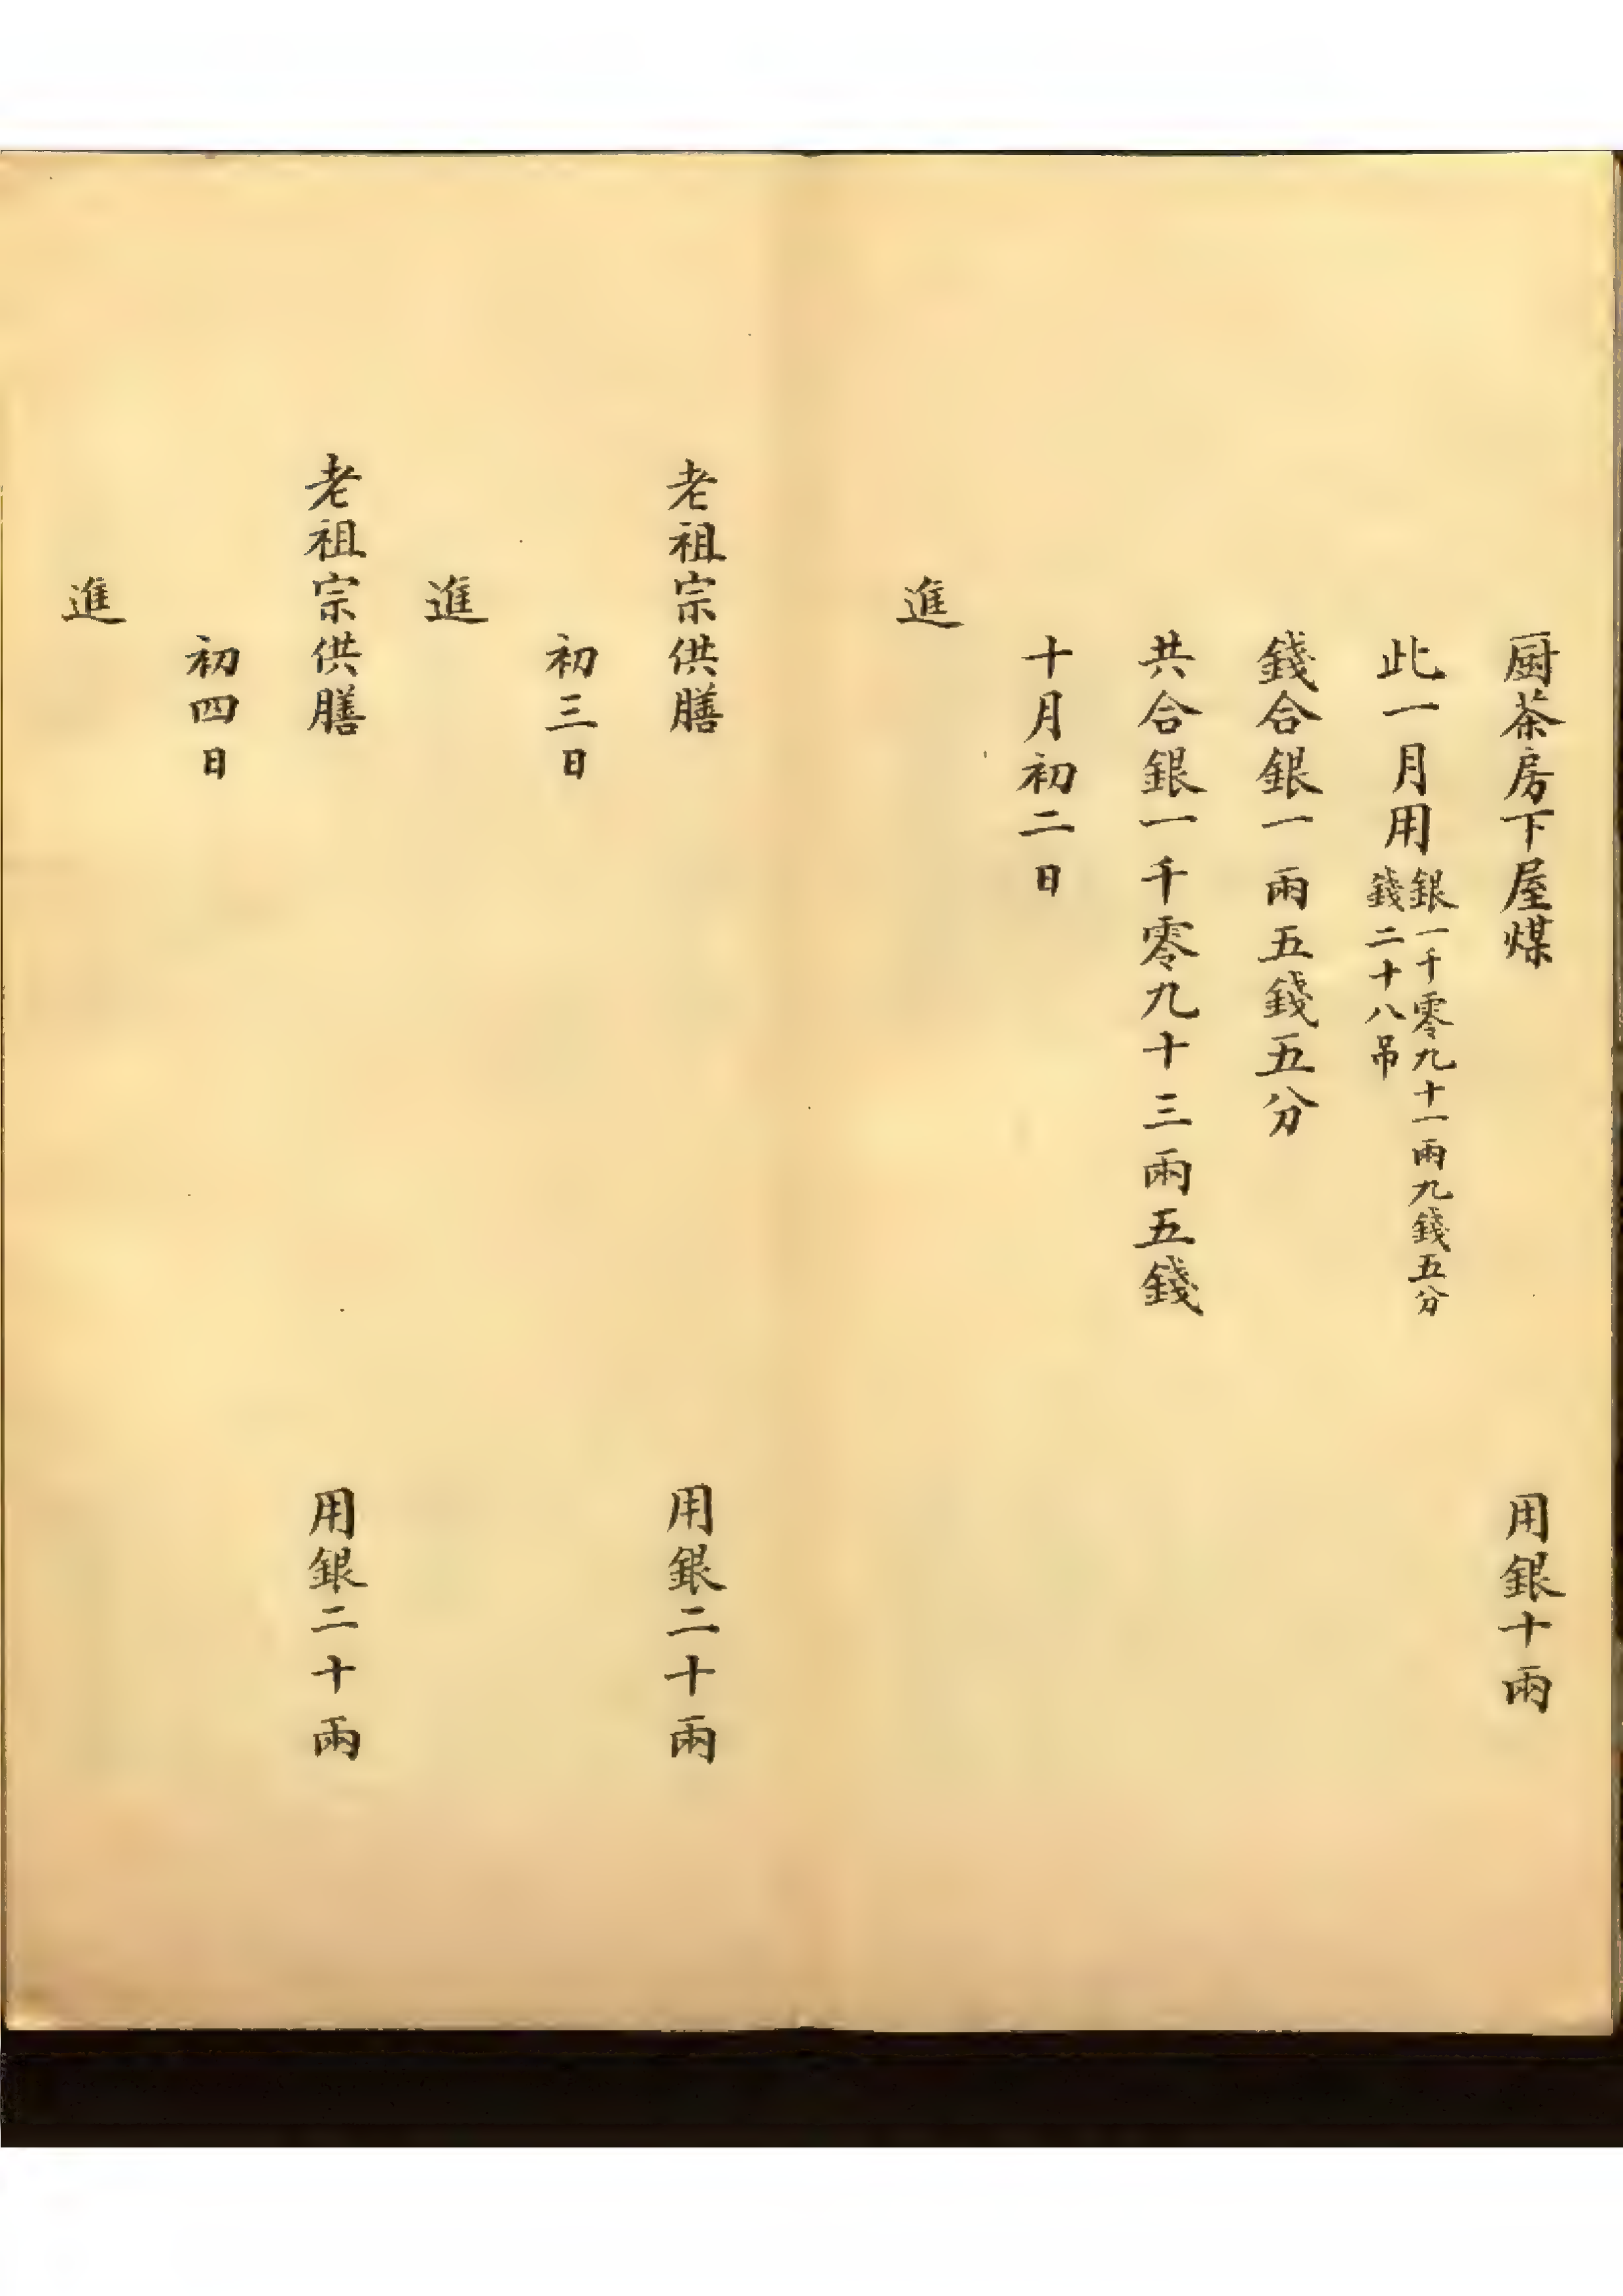 厨茶房下屋煤　用銀十兩
此一月用銀一千零九十一兩九錢五分
錢二十八吊
錢合銀一兩五錢五分
共合銀一千零九十三兩五錢
十月初二日
進
老祖宗供膳　用銀二十兩
初三日
進
老祖宗供膳　用銀二十兩
初四日
進